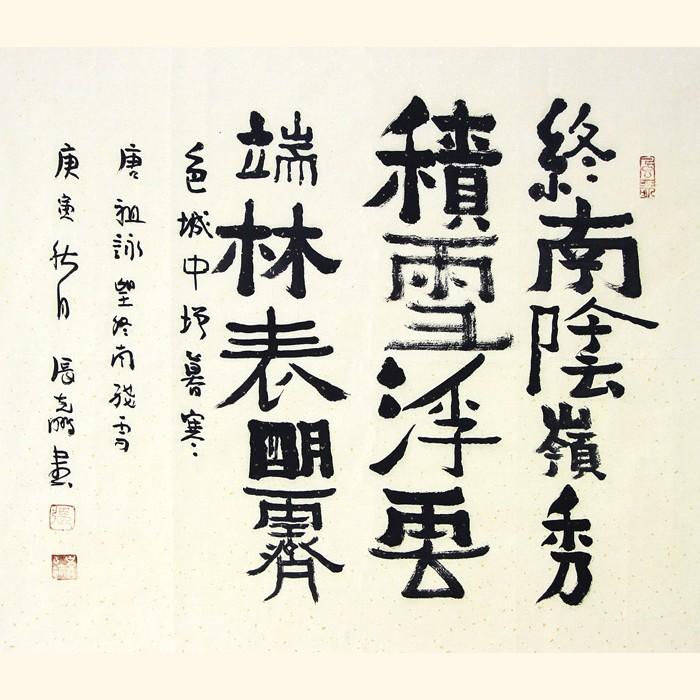 終南陰嶺秀
積雪浮雲
端林表明霽
色城中增暮寒
唐祖詠望終南殘雪
庚寅秋月張克鵬書